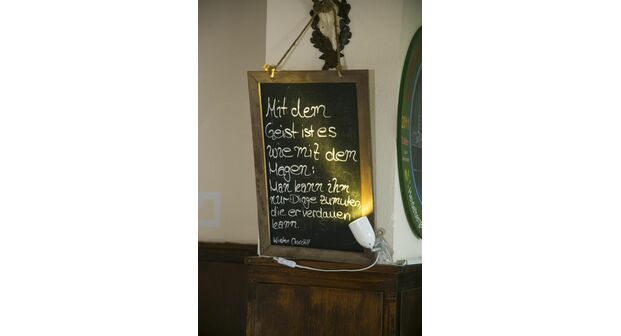 Mit dem
Geist ist es
wie mit dem
Magen:
Man kann ihm
nur Dinge zumuten,
die er verdauen
kann.
Winston Churchill